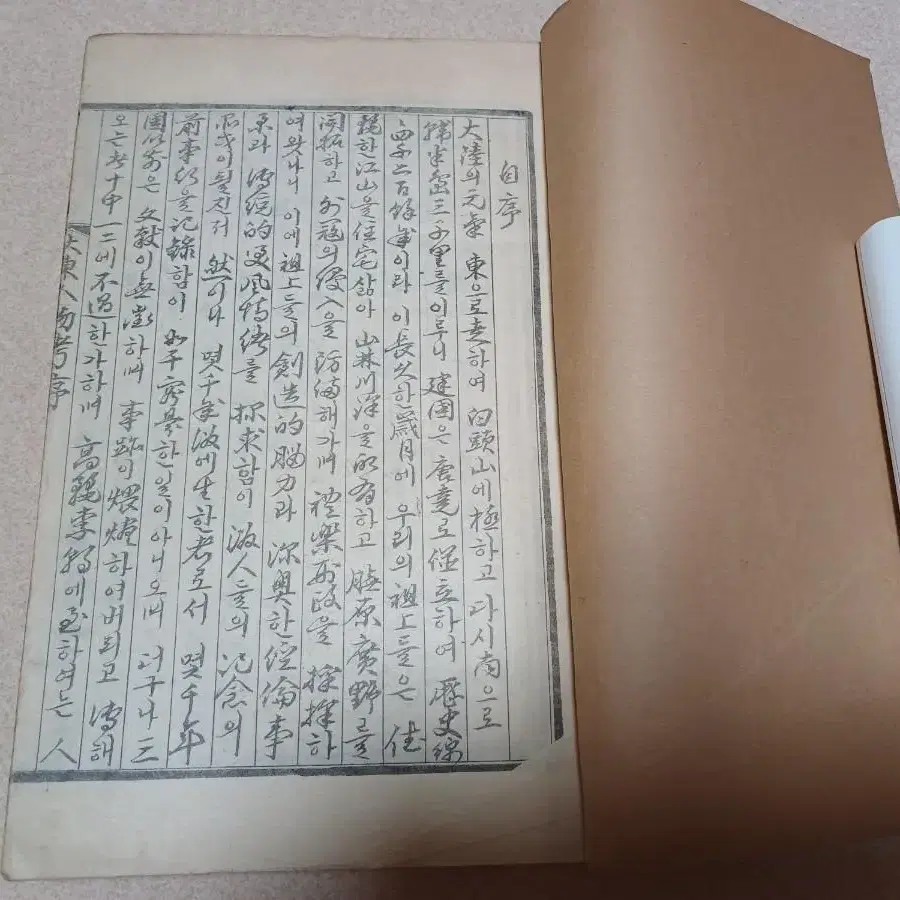 自序
大陸의元氣 東으로走하여 白頭山에極하고 다시南으로
三千里를이루니 建國은 唐堯로並立하여 歷史綿
이라 이長久한歲月에 우리의祖上들은 佳
麗한江山을住宅삼아 山林川澤을所有하고 廣野를
開拓하고 外寇의侵入을 防備해가며 禮樂 을 하
여왓나니 이에祖上들의 創造的腦力과 深奧한經倫事
과 傳統的 를 探求함이 後人들의 記念의
이될진저 然이나 몃千年後에生한者로서 몃千年
前事 을記錄함이 한일이아니오며 더구나三
國以前은 文獻이無徵하며 事跡이 하여버리고 傳해
오는者十中一二에不過한가하며 高麗李朝에至하여는 人
大東 考序